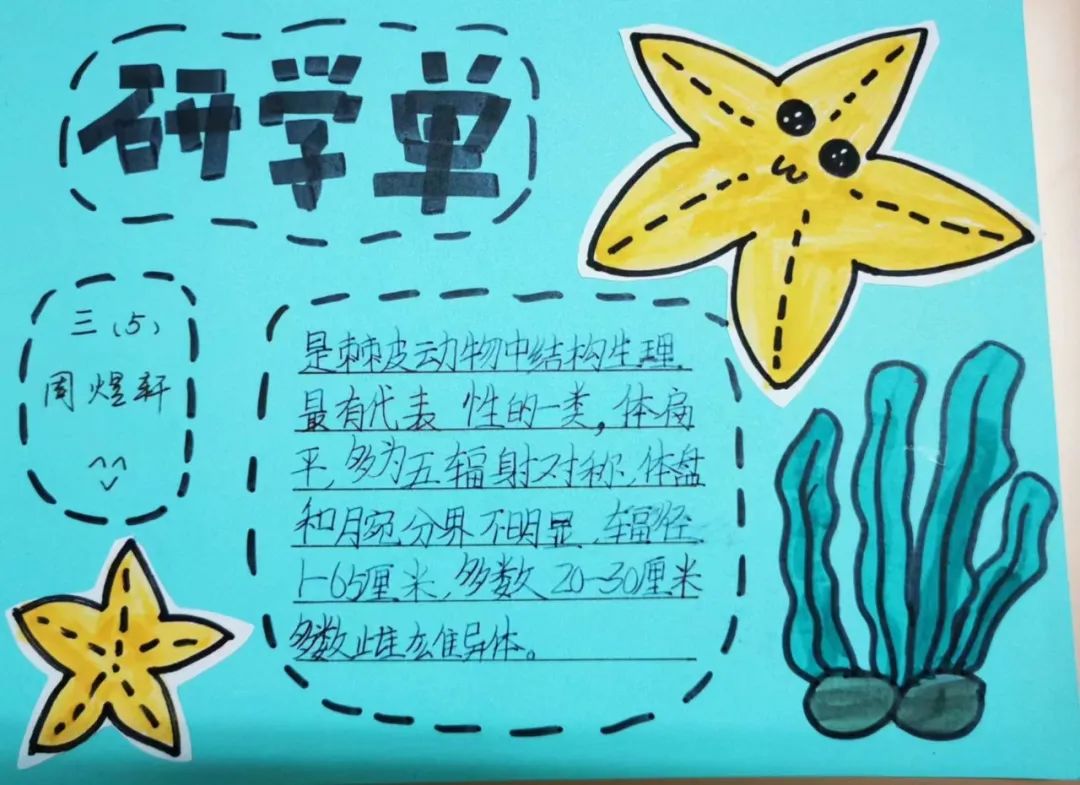 研学单
三（5）
周煜轩
是棘皮动物中结构生理
最有代表 性的一类，体扁
平，多为五辐射对称，体盘
和腕分界不明显，辐径
1-65厘米，多数20-30厘米
多数雌雄异体。